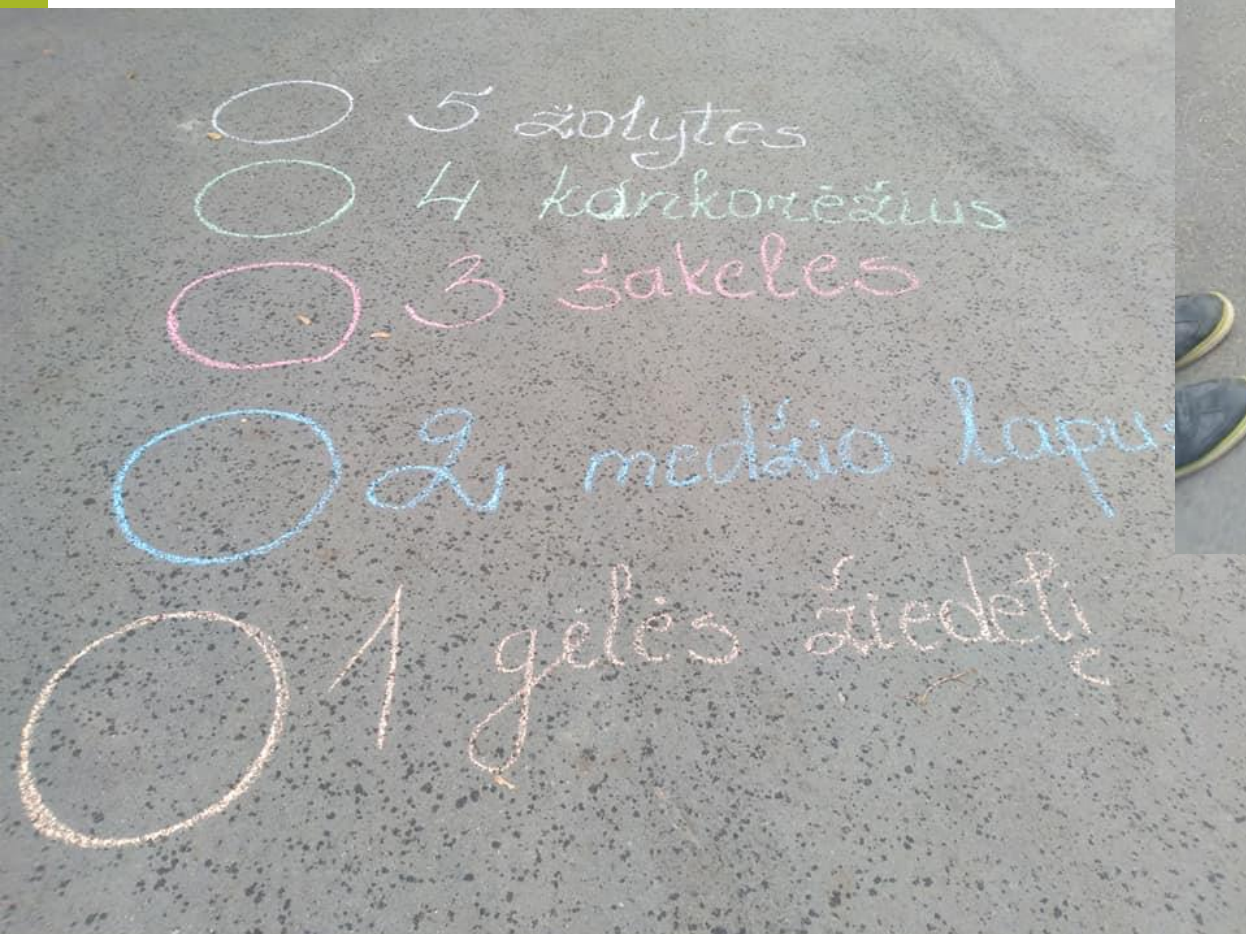 5 žolytes
4 kankorėžius
3 šakeles
2 medžio lapu
1 gėlės žiedelį